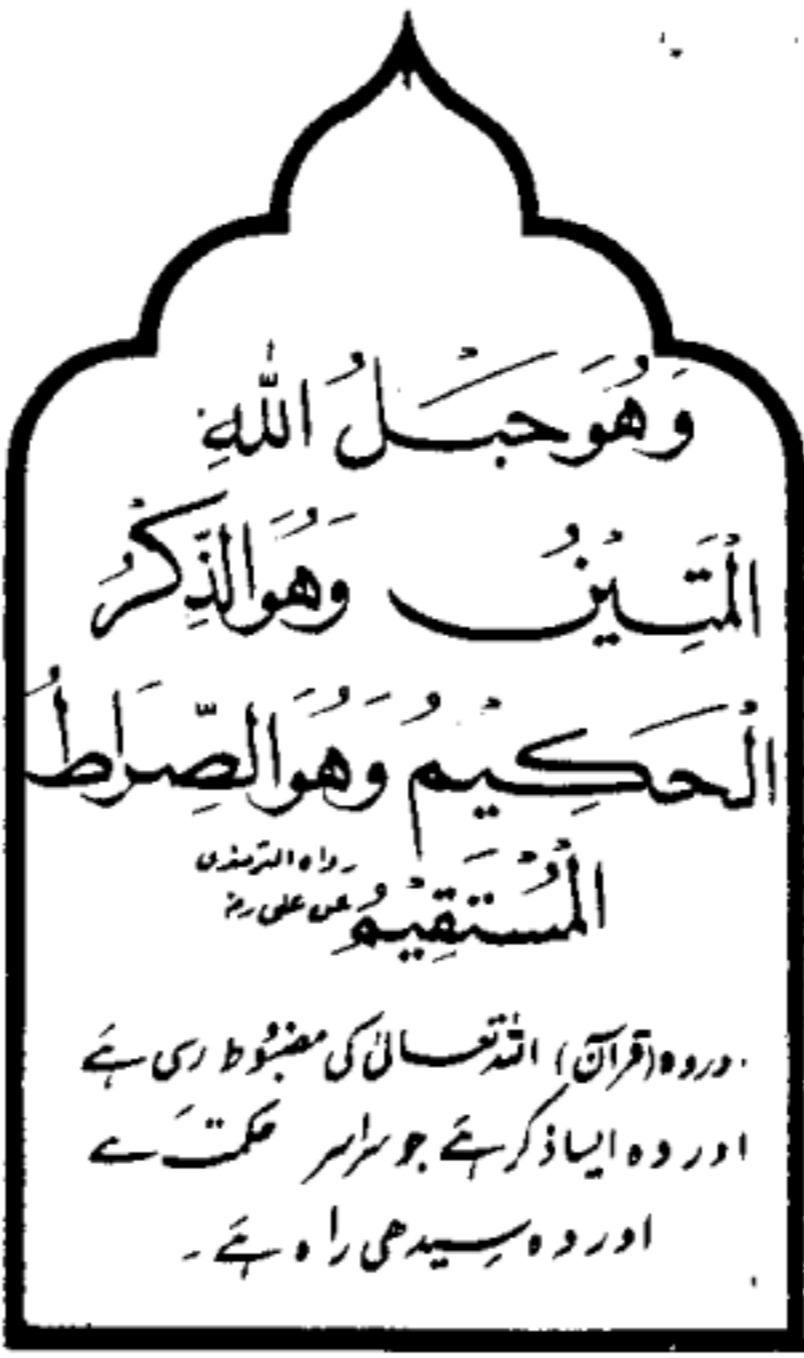 وَهُوَ حَبْلُ اللّٰهِ
الْمَتِيْنُ وَهُوَ الذِّكْرُ
الْحَكِيْمُ وَهُوَ الصِّرَاطُ
الْمُسْتَقِيْمُ
رواہ الترمذی
عن علی رض
اور وہ (قرآن) اللہ تعالیٰ کی مضبُوط رسی ہے
اور وہ ایسا ذکر ہے جو سراسر حکمت ہے
اور وہ سیدھی راہ ہے۔